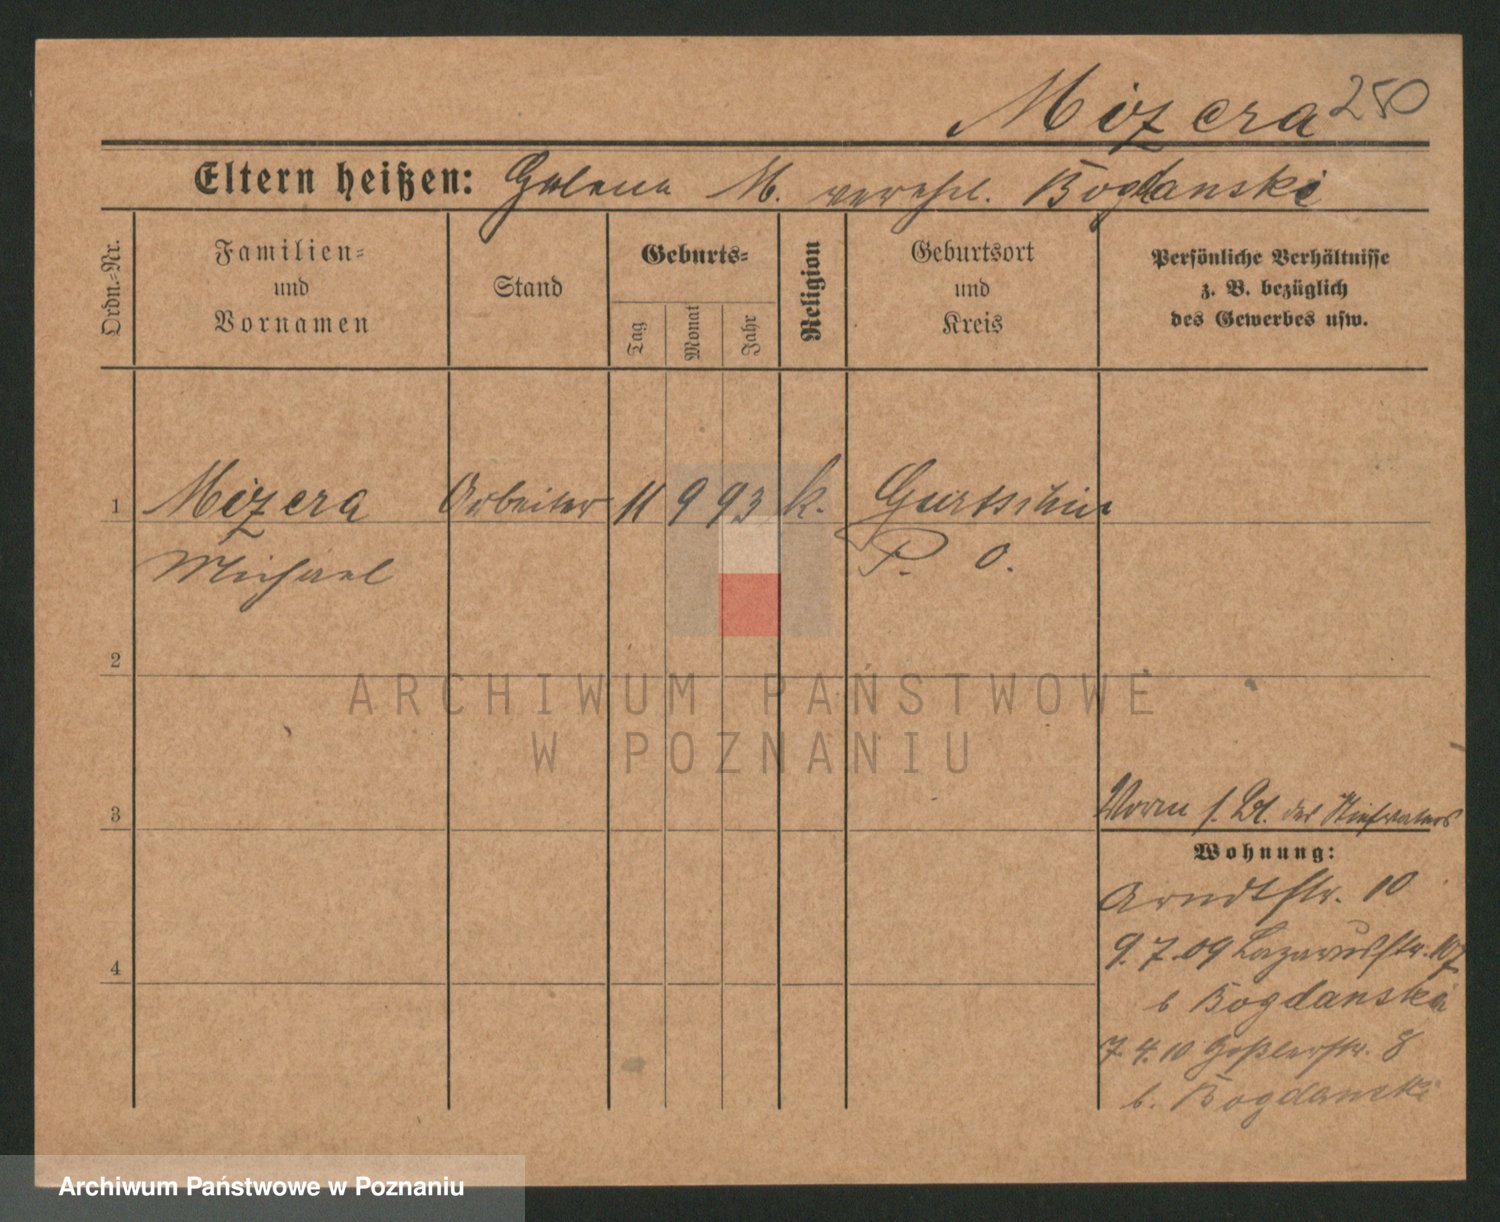 Mizera 250
Eltern heißen: Helena M. verehel. Bogdanski
Ordn.=Nr.
Familien=
und
Vornamen
Stand
Geburts=
Tag
Monat
Jahr
Religion
Geburtsort
und
Kreis
Persönliche Verhältnisse
z. B. bezüglich
des Gewerbes usw.
1 Mizera Arbeiter 11 9 93 k. Gurtschin
Michael P. O.
2
ARCHIWUM PAŃSTWOWE
W POZNANIU
3
des Stiefvaters
Wohnung:
Arndtstr. 10
9.7.09 Lazarusstr. 107
b Bogdanski
4
7.4.10 Goßlerstr. 8
b. Bogdanski
Archiwum Państwowe w Poznaniu